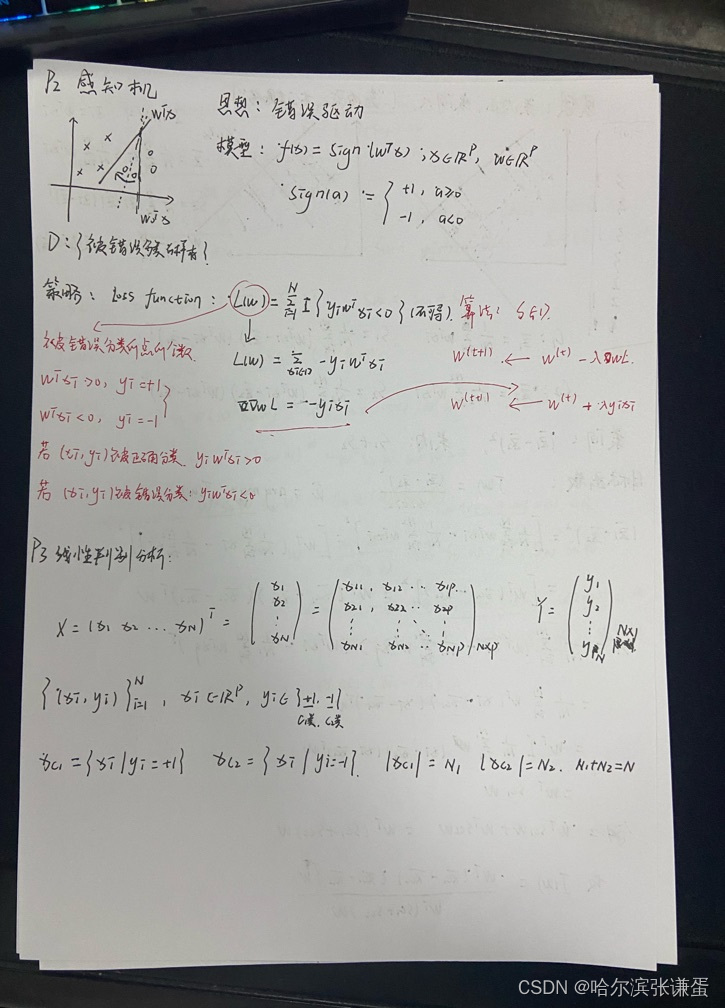 P2 感知机
思想：错误驱动
模型：f(x) = sign(wᵀx), x∈ℝᴾ, w∈ℝᴾ
sign(a) = { +1, a≥0
-1, a<0
wᵀx
wᵀx
D：{被错误分类样本}
策略：loss function：L(w) = Σᵢ₌₁ᴺ I{yᵢwᵀxᵢ<0} (不可导). 算法：SGD.
被错误分类的点的个数
L(w) = Σ_{xᵢ∈D} -yᵢwᵀxᵢ
w⁽ᵗ⁺¹⁾ ← w⁽ᵗ⁾ - λ∇wL
wᵀxᵢ>0, yᵢ=+1
wᵀxᵢ<0, yᵢ=-1
∇wL = -yᵢxᵢ
w⁽ᵗ⁺¹⁾ ← w⁽ᵗ⁾ + λyᵢxᵢ
若(xᵢ,yᵢ)被正确分类 yᵢwᵀxᵢ>0
若(xᵢ,yᵢ)被错误分类：yᵢwᵀxᵢ<0
P3 线性判别分析：
X = (x₁ x₂ … x_N)ᵀ = (x₁ x₂ ⋮ x_N) = (x₁₁, x₁₂ … x₁p … x₂₁, x₂₂ … x₂p ⋮ x_N1 x_N2 … x_Np)_{N×p} Y = (y₁ y₂ ⋮ y_N)_{N×1}
{(xᵢ,yᵢ)}ᵢ₌₁ᴺ, xᵢ∈ℝᴾ, yᵢ∈{+1,-1}
C₁类, C₂类
x_C1 = {xᵢ|yᵢ=+1} x_C2 = {xᵢ|yᵢ=-1}. |x_C1| = N₁ |x_C2| = N₂. N₁+N₂=N
CSDN @哈尔滨张谦蛋